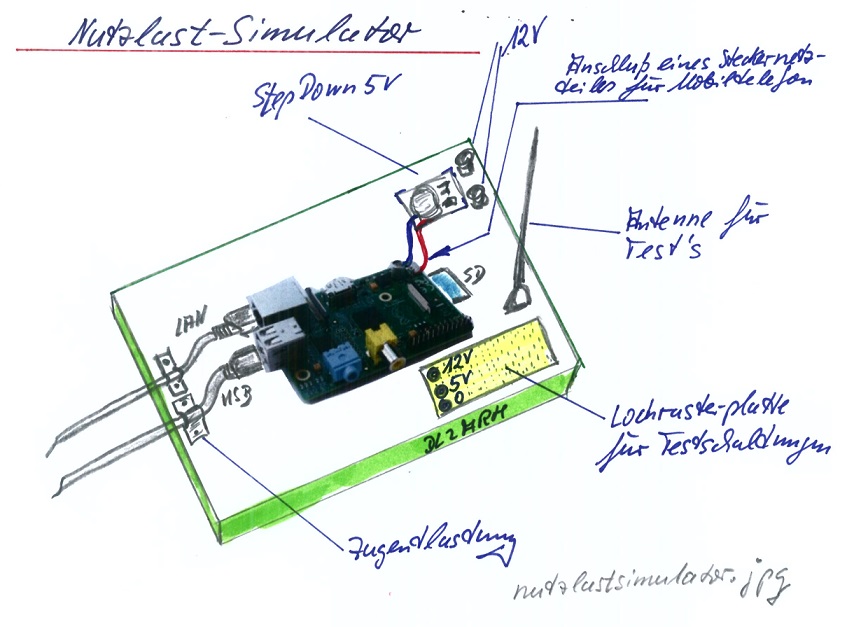 Nutzlast-Simulator
12V
Anschluß eines Steckernetz-
teiles für Mobiltelefon
StepDown 5V
Antenne für
Test's
SD
LAN
USB
12V
5V
0
DL2MRH
Lochrasterplatte
für Testschaltungen
Zugentlastung
nutzlastsimulator.jpg